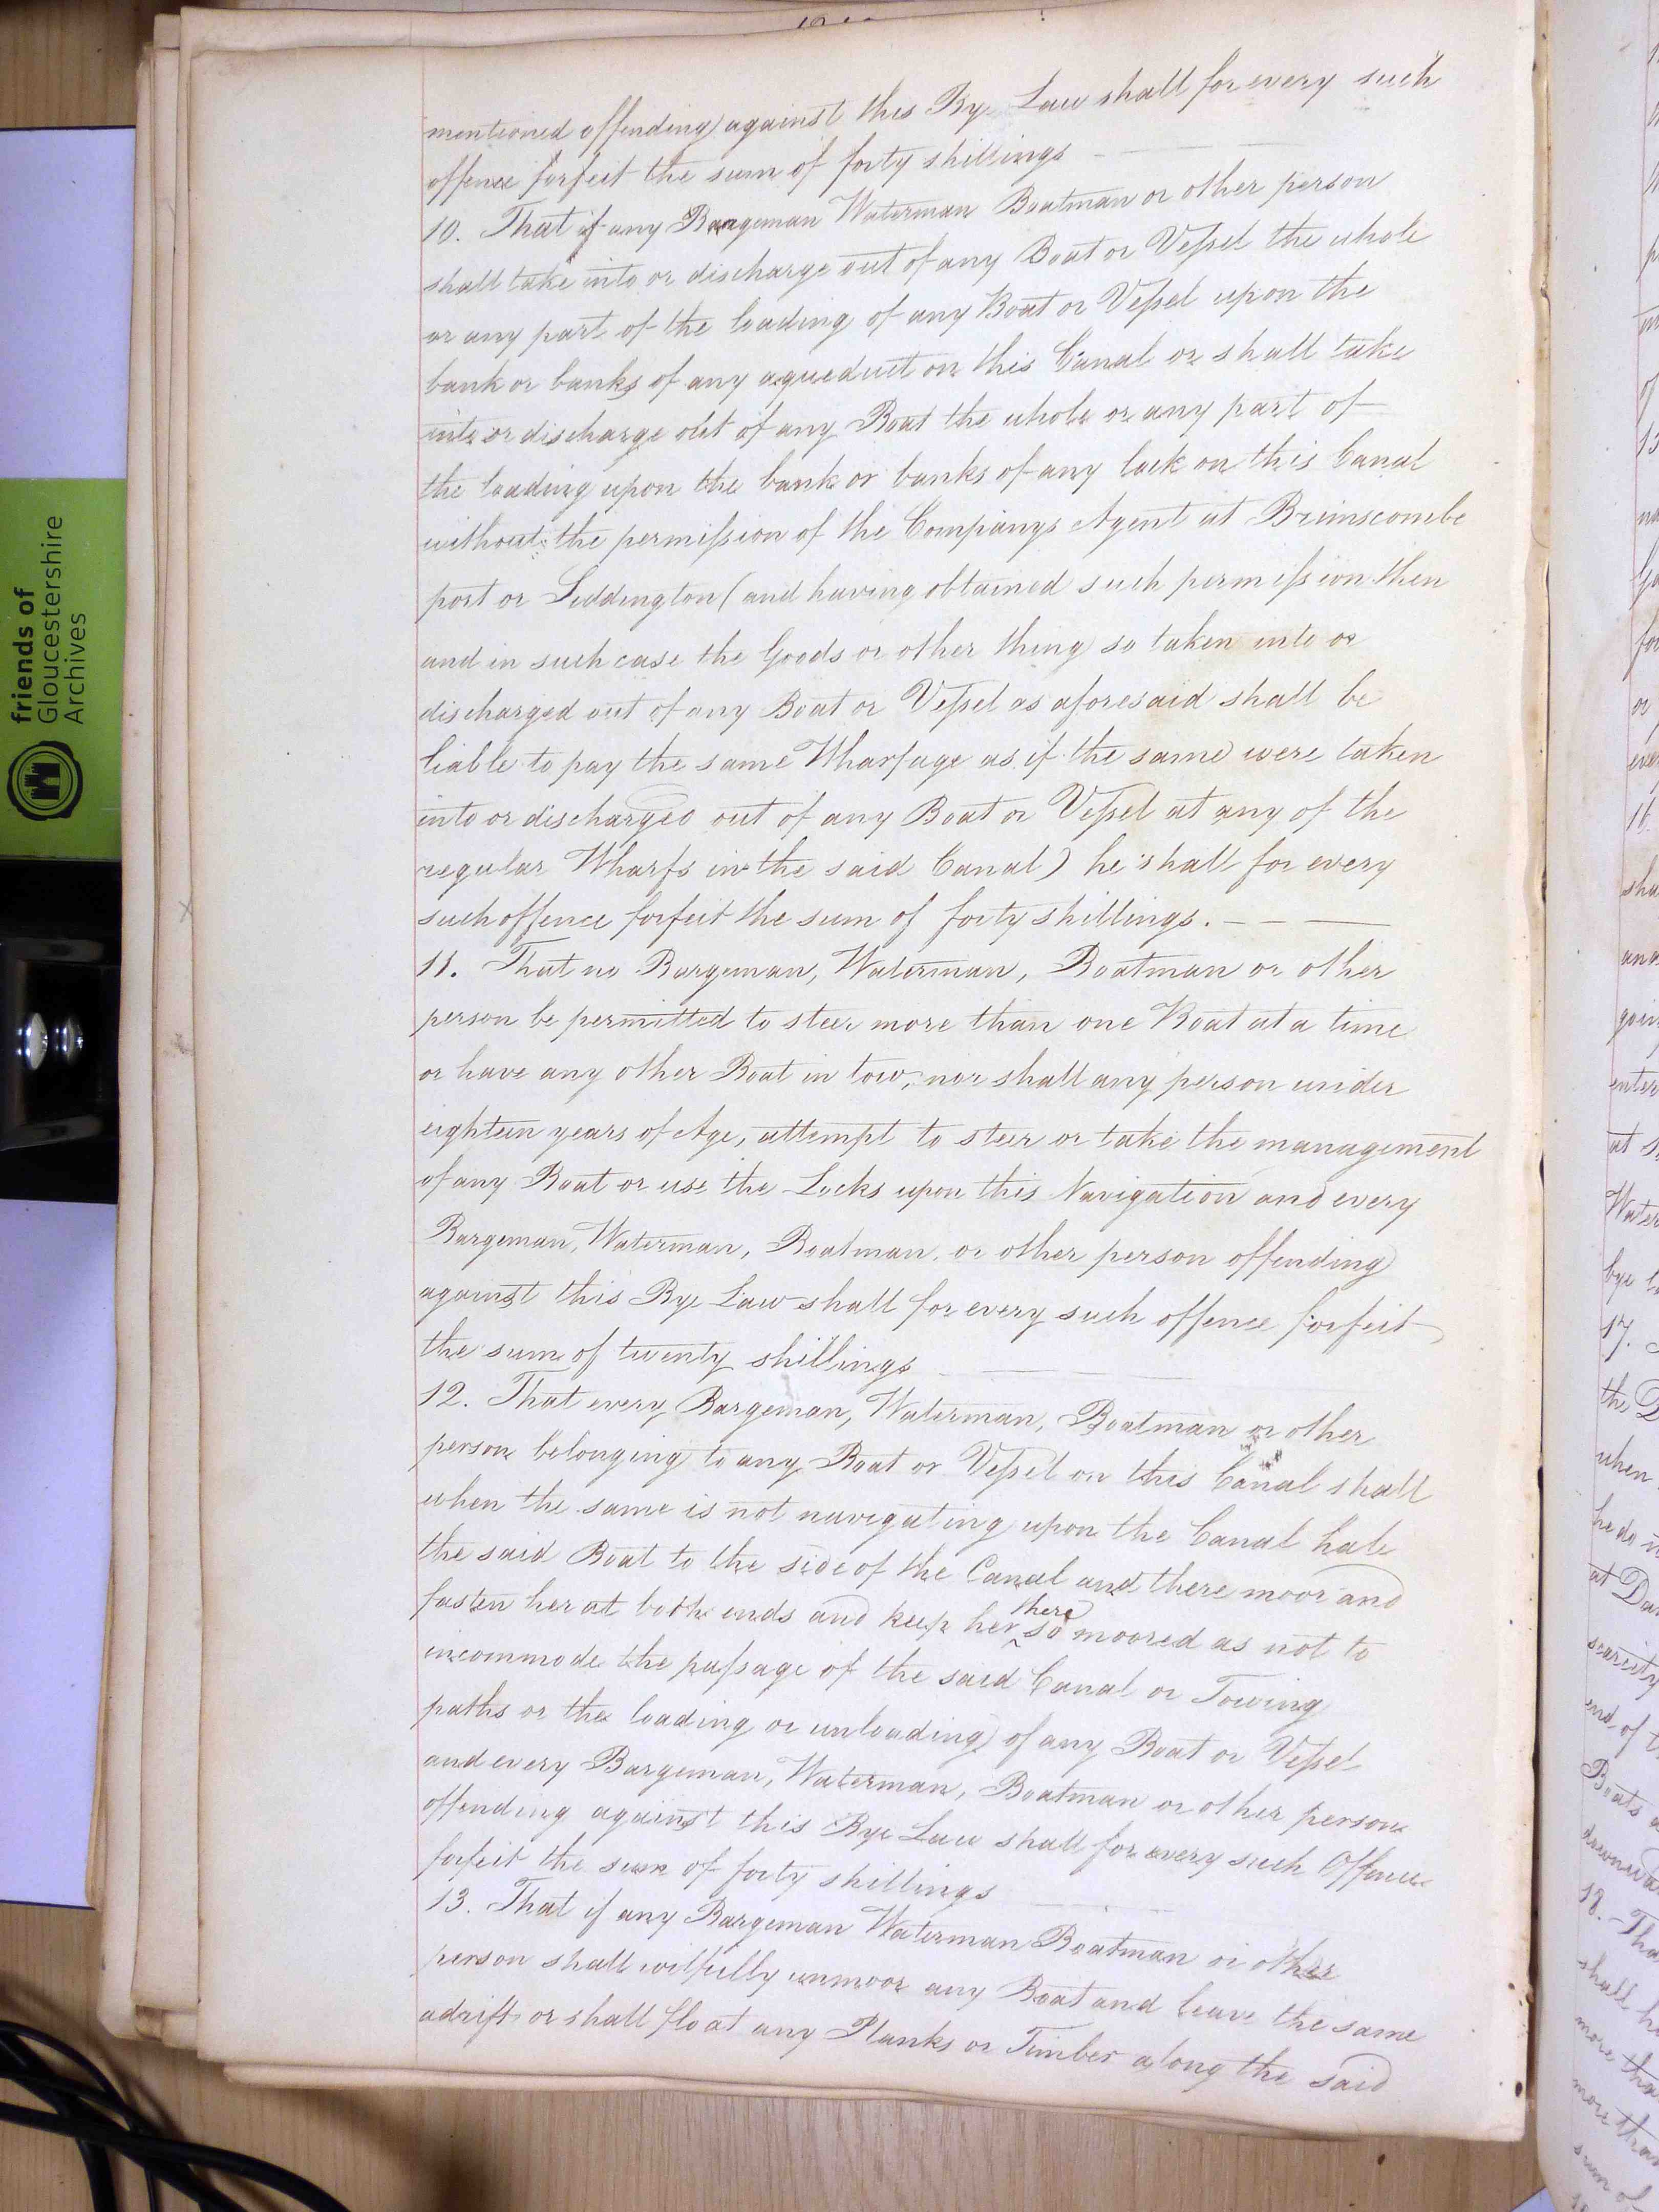 mentioned offending against this Bye Law shall for every such
offence forfeit the sum of forty shillings
10. That if any Bargeman Waterman Boatman or other person
shall take into or discharge out of any Boat or Vessel the whole
or any part of the loading of any Boat or Vessel upon the
bank or banks of any aqueduct on this Canal or shall take
into or discharge out of any Boat the whole or any part of
the loading upon the bank or banks of any lock on this Canal
without the permission of the Companys Agent at Brimscombe
port or Siddington (and having obtained such permission then
and in such case the Goods or other thing so taken into or
discharged out of any Boat or Vessel as aforesaid shall be
liable to pay the same Wharfage as if the same were taken
into or discharged out of any Boat or Vessel at any of the
regular Wharfs in the said Canal) he shall for every
such offence forfeit the sum of forty shillings.
11. That no Bargeman, Waterman, Boatman or other
person be permitted to steer more than one Boat at a time
or have any other Boat in tow, nor shall any person under
eighteen years of Age, attempt to steer or take the management
of any Boat or use the Locks upon this Navigation and every
Bargeman, Waterman, Boatman, or other person offending
against this Bye Law shall for every such offence forfeit
the sum of twenty shillings
12. That every Bargeman, Waterman, Boatman or other
person belonging to any Boat or Vessel on this Canal shall
when the same is not navigating upon the Canal hale
the said Boat to the side of the Canal and there moor and
fasten her at both ends and keep her there so moored as not to
incommode the passage of the said Canal or Towing
paths or the loading or unloading of any Boat or Vessel
and every Bargeman, Waterman, Boatman or other person
offending against this Bye Law shall for every such Offence
forfeit the sum of forty shillings
13. That if any Bargeman Waterman Boatman or other
person shall wilfully unmoor any Boat and leave the same
adrift or shall float any Planks or Timber along the said
friends of
Gloucestershire
Archives